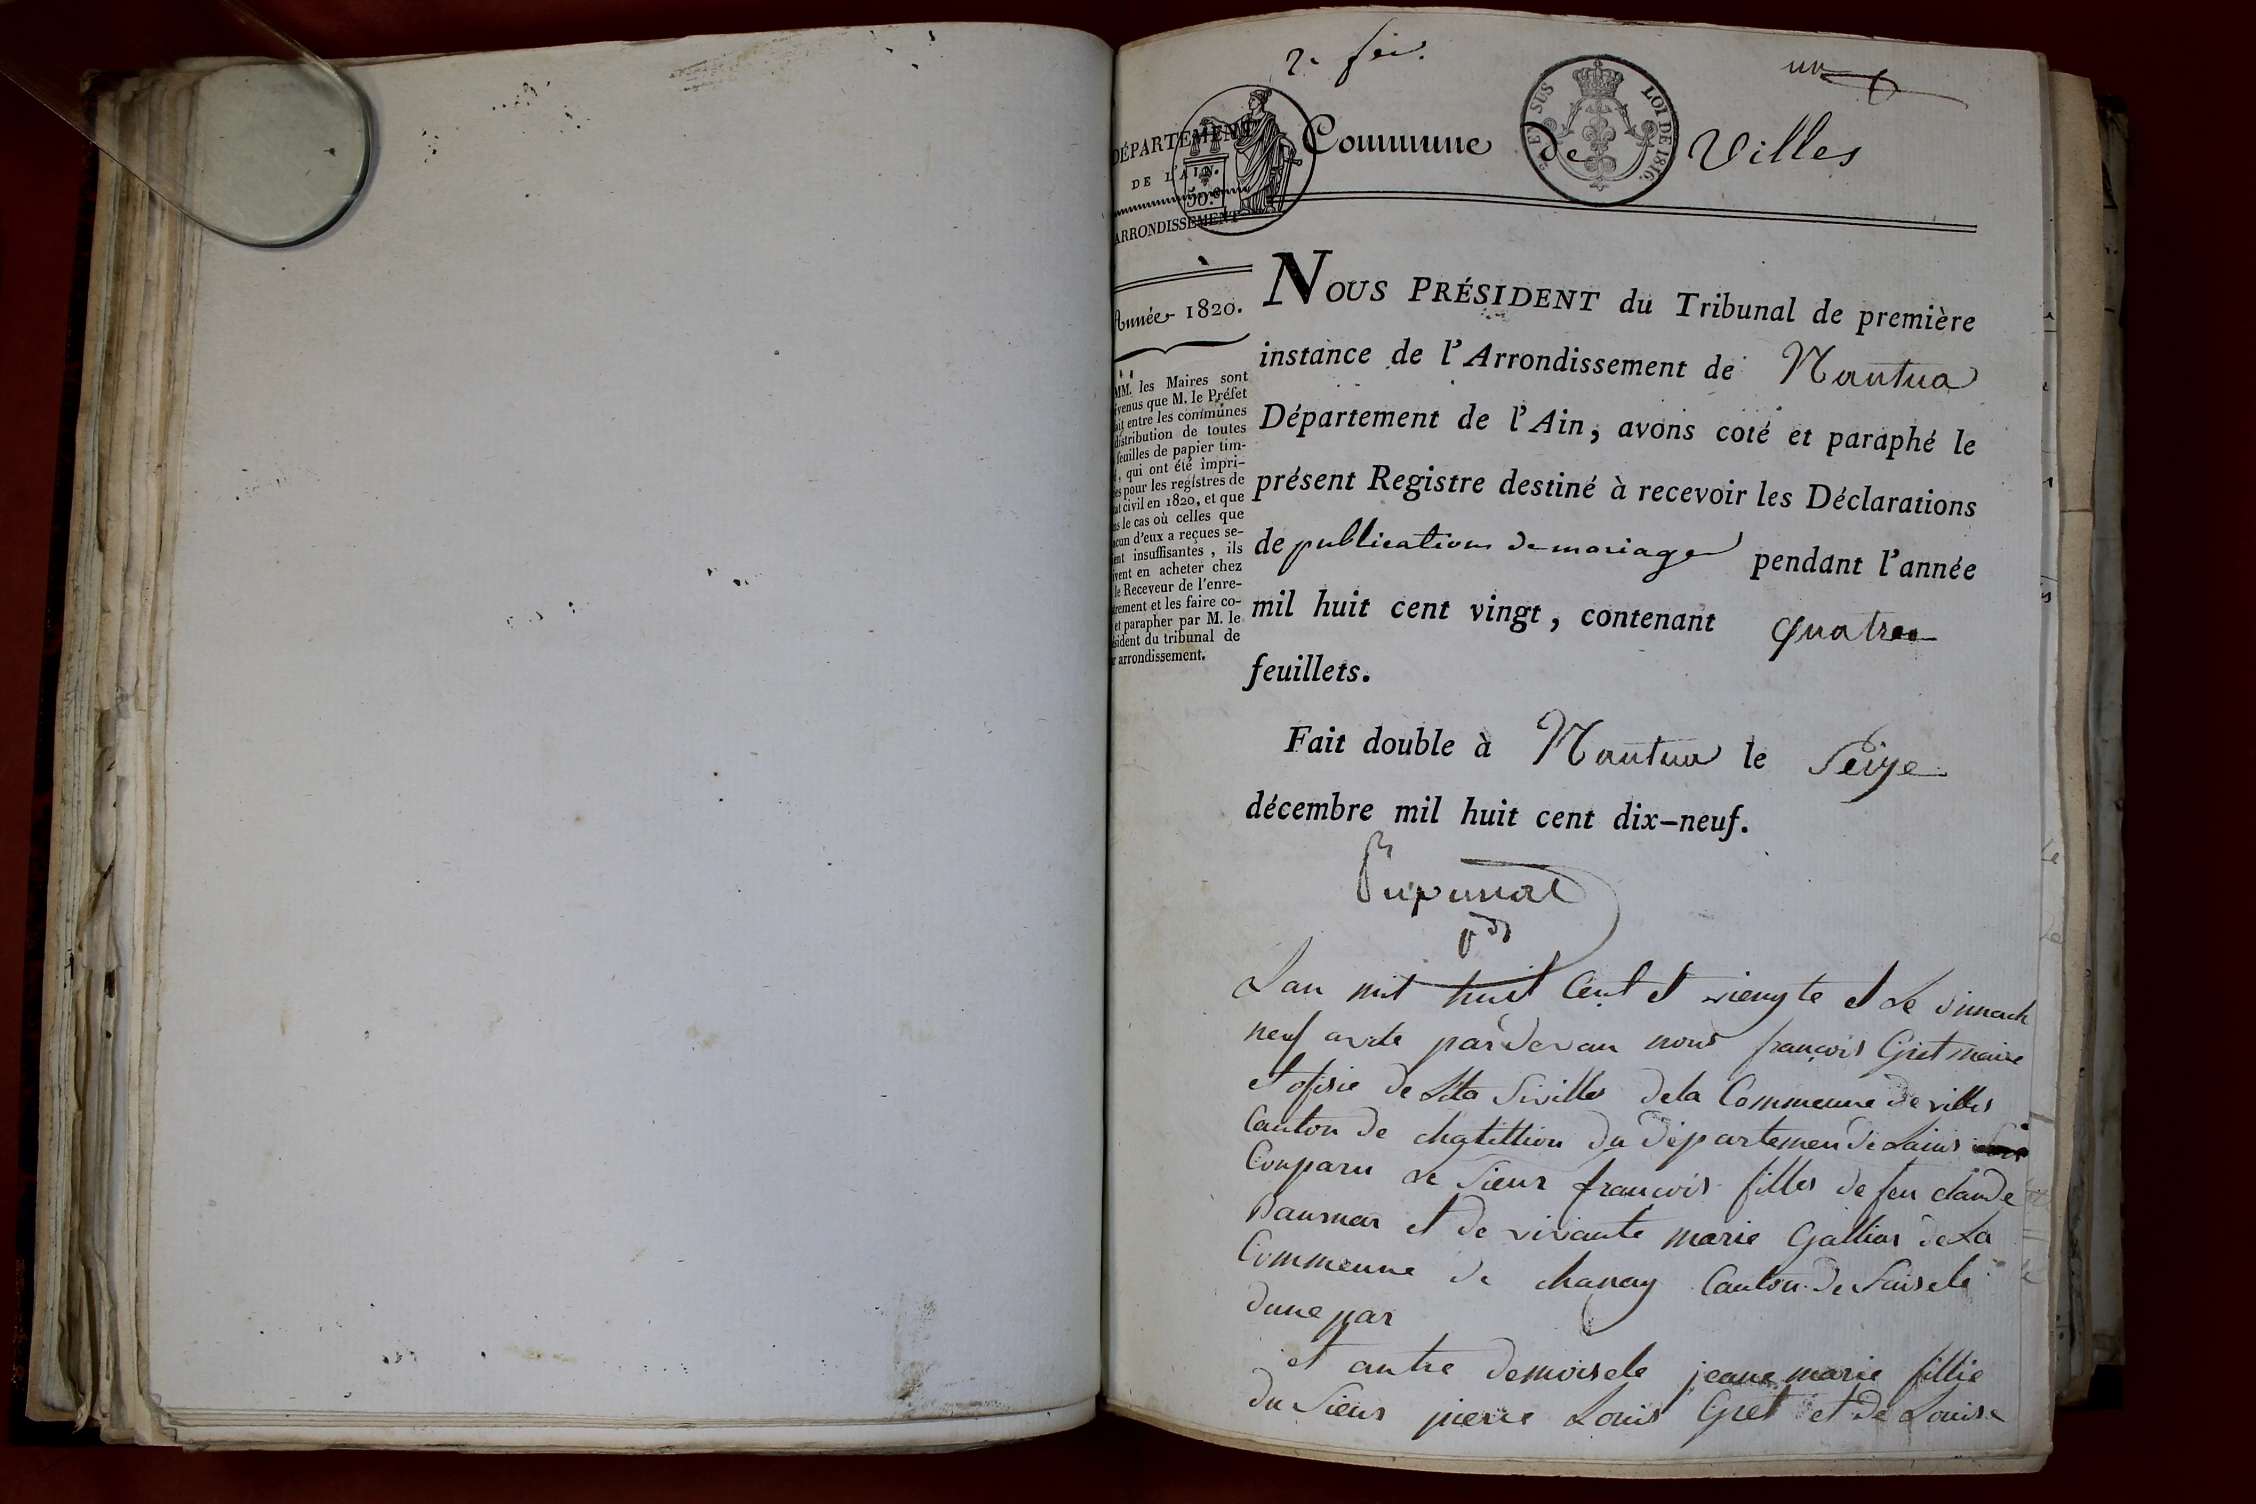 2e
un
DÉPARTEMENT
DE L'AIN.
50.c
ARRONDISSEMENT
Commune de Villes
ET SUS
LOI DE 1816.
Année 1820.
MM. les Maires sont
venus que M. le Préfet
ait entre les communes
distribution de toutes
feuilles de papier tim-
, qui ont été impri-
es pour les registres de
at civil en 1820, et que
ns le cas où celles que
acun d'eux a reçues se-
ent insuffisantes, ils
ivent en acheter chez
le Receveur de l'enre-
trement et les faire co-
et parapher par M. le
ésident du tribunal de
r arrondissement.
NOUS PRÉSIDENT du Tribunal de première
instance de l'Arrondissement de Nantua
Département de l'Ain, avons coté et paraphé le
présent Registre destiné à recevoir les Déclarations
de publications de mariage pendant l'année
mil huit cent vingt, contenant quatre
feuillets.
Fait double à Nantua le Seize
décembre mil huit cent dix-neuf.
Lan mil huit Cent et viengte et Le dimach
neuf avrte pardevan nous françois Gret maire
et ofisie de Léta Sivilles dela Commeune de villes
Canton de chatillion du departemen de Lains
Conparu Le Sieur francois filles de feu claude
et de vivante marie Gallias de La
Commeune de chanay Canton de Saisele
dune par
et autre demoisele jeane marie fillie
du Sieur pierre Louis Gret et de Louise